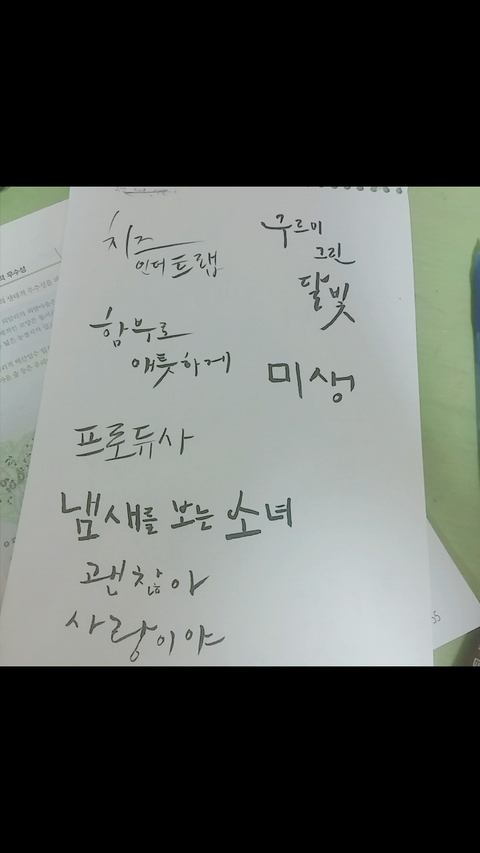 치즈
인더트랩
구르미
그린
달빛
함부로
애틋하게
미생
프로듀사
냄새를 보는 소녀
괜찮아
사랑이야
55